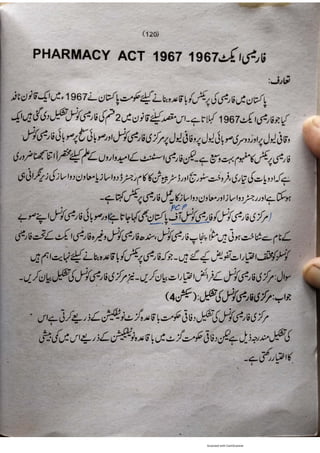 (120)
فارمیسی ایکٹ 1967 PHARMACY ACT 1967
تعارف:
پاکستان میں فارمیسی کی پریکٹس کو باقاعدہ بنانے کیلئے حکومت پاکستان نے 1967ء میں ایک قانون نافذ
کیا جو فارمیسی ایکٹ 1967 کہلاتا ہے۔ اس مقصد کیلئے قانون میں 2 قسم کی فارمیسی کونسل تشکیل دی گئی ہیں ایک
وفاقی لیول پر اور دوسری صوبائی لیول پر وفاقی لیول پر مرکزی فارمیسی کونسل اور صوبائی سطح پر صوبائی فارمیسی کونسل
فارمیسی پریکٹس کا مفہوم بہت وسیع ہے۔ لیکن فارمیسی اسسٹنٹ کے امیدواروں کے علم کیلئے مختصراً اتنا سمجھنا ضروری
ہے کہ ادویات کی تیاری، فروخت سٹوریج اور ڈسٹری بیوشن کا کام رجسٹرڈ دواساز یا معاون دواساز کی زیر نگرانی ہی
ہو سکتا ہے اور رجسٹرڈ دواساز اور معاون دواساز کا یہ عمل فارمیسی پریکٹس کہتا ہے۔
PCP
مرکزی فارمیسی کونسل کو فارمیسی کونسل آف پاکستان بھی کہا جاتا ہے اور صوبائی فارمیسی کونسل اپنے صوبے
کے نام سے شناخت ہوتی ہیں مثلاً پنجاب فارمیسی کونسل، سندھ فارمیسی کونسل وغیرہ فارمیسی ایکٹ کے تحت فارمیسی
کونسل کو مختلف اختیارات تفویض کیے گئے ہیں۔ جو کہ فارمیسی پریکٹس کو باقاعدہ بنانے کیلئے نہایت اہم ہیں
سوال: مرکزی فارمیسی کونسل کے فرائض اختیارات بیان کریں۔ نیز مرکزی فارمیسی کونسل کی تشکیل بیان کریں۔
جواب: مرکزی فارمیسی کونسل کی تشکیل: (سیکشن 4)
مرکزی فارمیسی کونسل کی تشکیل وفاقی حکومت باقاعدہ گزٹ نوٹیفکیشن کے ذریعے کرتی ہے اس
کی تشکیل مندرجہ ذیل ہے لیکن وفاقی حکومت گزٹ میں باقاعدہ نوٹیفکیشن کے ذریعے اس میں کمی بیشی
کا اختیار رکھتی ہے۔
Scanned with CamScanner